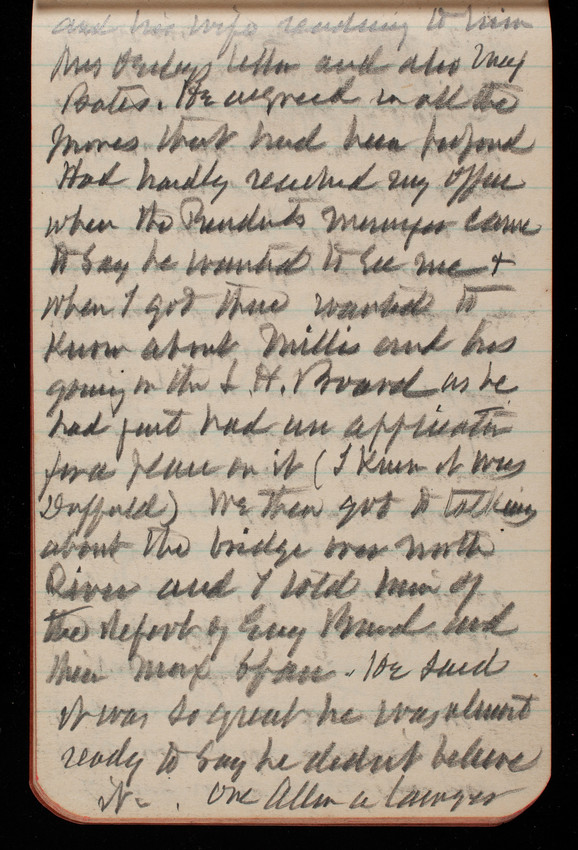 and his wife reading to him
Mrs letter and also Maj
Bates. He agreed in all the
moves that had been proposed
Had hardly reached my office
when the Presidents messenger came
to say he wanted to see me +
when I got there wanted to
know about Millis and his
going on the L. H. Board as he
had just had an application
for a place on it (I knew it was
Duffield) We then got to talking
about the bridge over North
River and I told him of
the report of Eng Board and
their max span. He said
it was so great he was almost
ready to say he didn't believe
it - . One Allen a lawyer